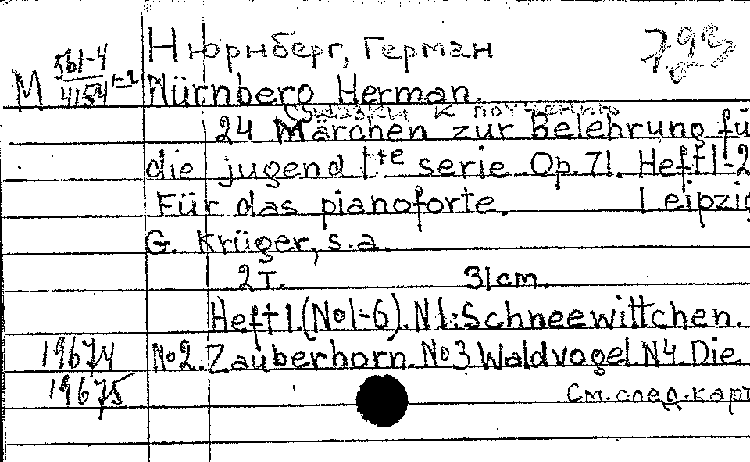 Нюрнберг, Герман
793
М 561-4/4154 1-2
Nürnberg Herman.
(Сказки к
24 Märchen zur Belehrung fü
die jugend 1te serie Op.71. Heft 1-2
Für das pianoforte. Leipzig
G. Krüger, s.a.
2 т. 31cm.
Heft 1.(No1-6). N1:Schneewittchen.
19674 No2.Zauberhorn.No3 Waldvogel.N4.Die
19675
См.след.карт